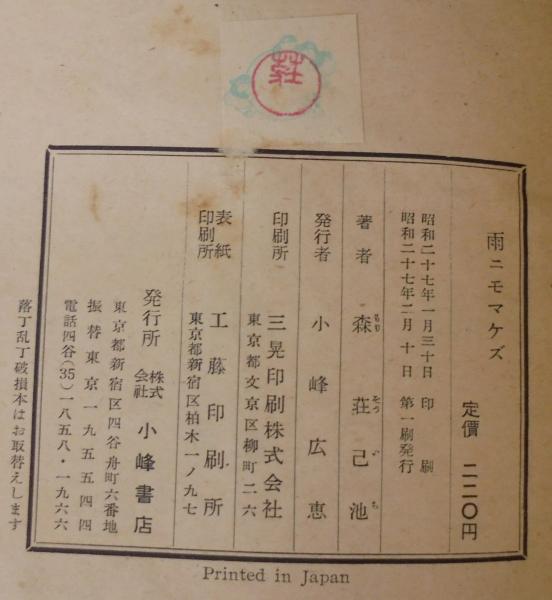 荘
雨ニモマケズ
定價 二二〇円
昭和二十七年一月三十日 印刷
昭和二十七年二月十日 第一刷発行
著者 森荘己池
もり そう い ち
発行者 小峰広恵
印刷所 三晃印刷株式会社
東京都文京区柳町二六
表紙印刷所 工藤印刷所
東京都新宿区柏木一ノ九七
発行所 株式会社 小峰書店
東京都新宿区四谷舟町六番地
振替東京一九五五四四
電話四谷(35)一八五八・一九六六
落丁乱丁破損本はお取替えします
Printed in Japan